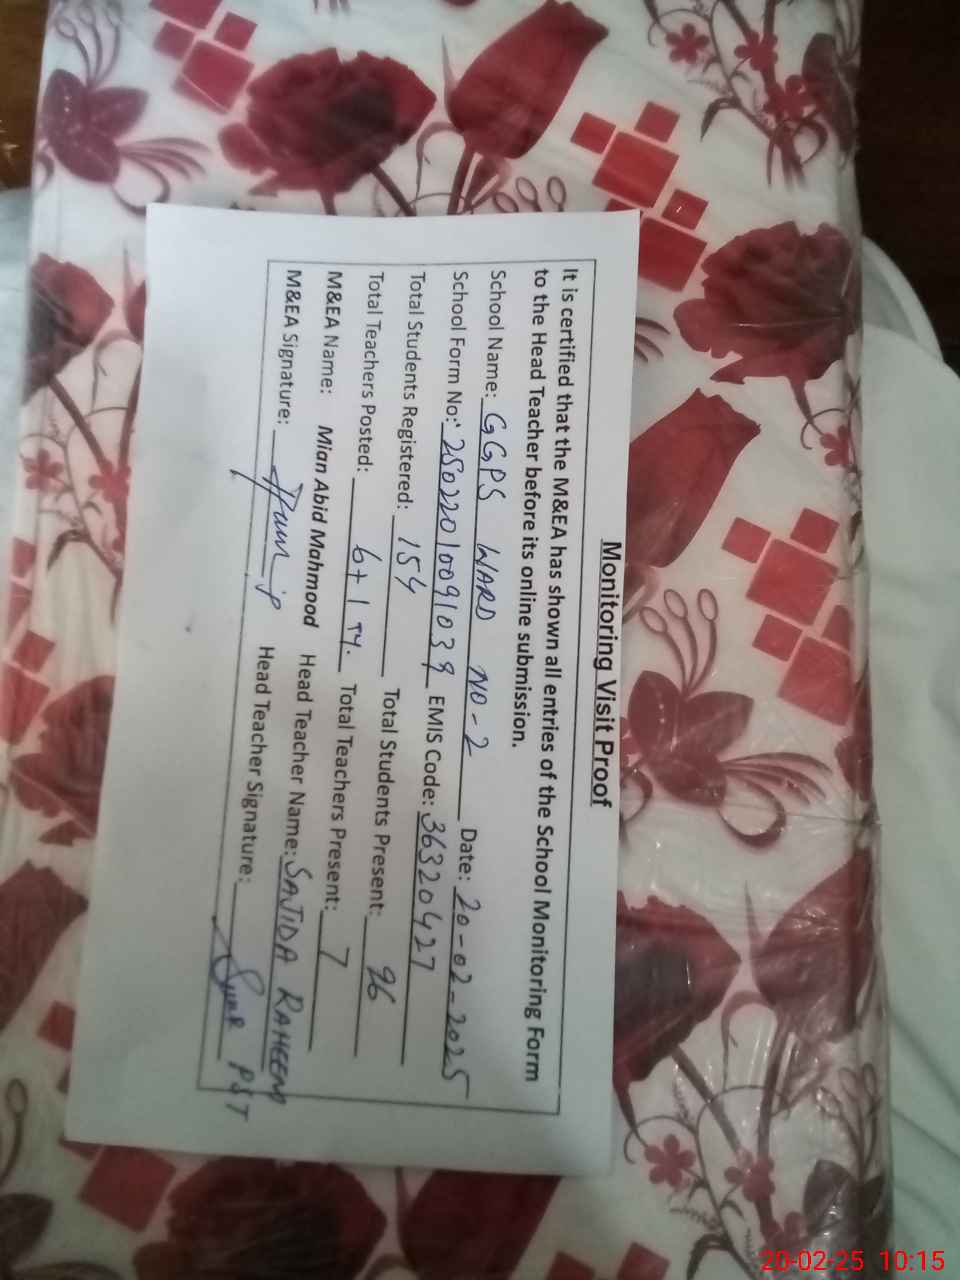 Monitoring Visit Proof
It is certified that the M&EA has shown all entries of the School Monitoring Form
to the Head Teacher before its online submission.
School Name: GGPS WARD NO-2 Date: 20-02-2025
School Form No: 25022010091039 EMIS Code: 36320427
Total Students Registered: 154 Total Students Present: 96
Total Teachers Posted: 6+1 Total Teachers Present: 7
M&EA Name: Mian Abid Mahmood Head Teacher Name: SAJIDA RAHEEM
M&EA Signature: Head Teacher Signature: PST
20-02-25 10:15